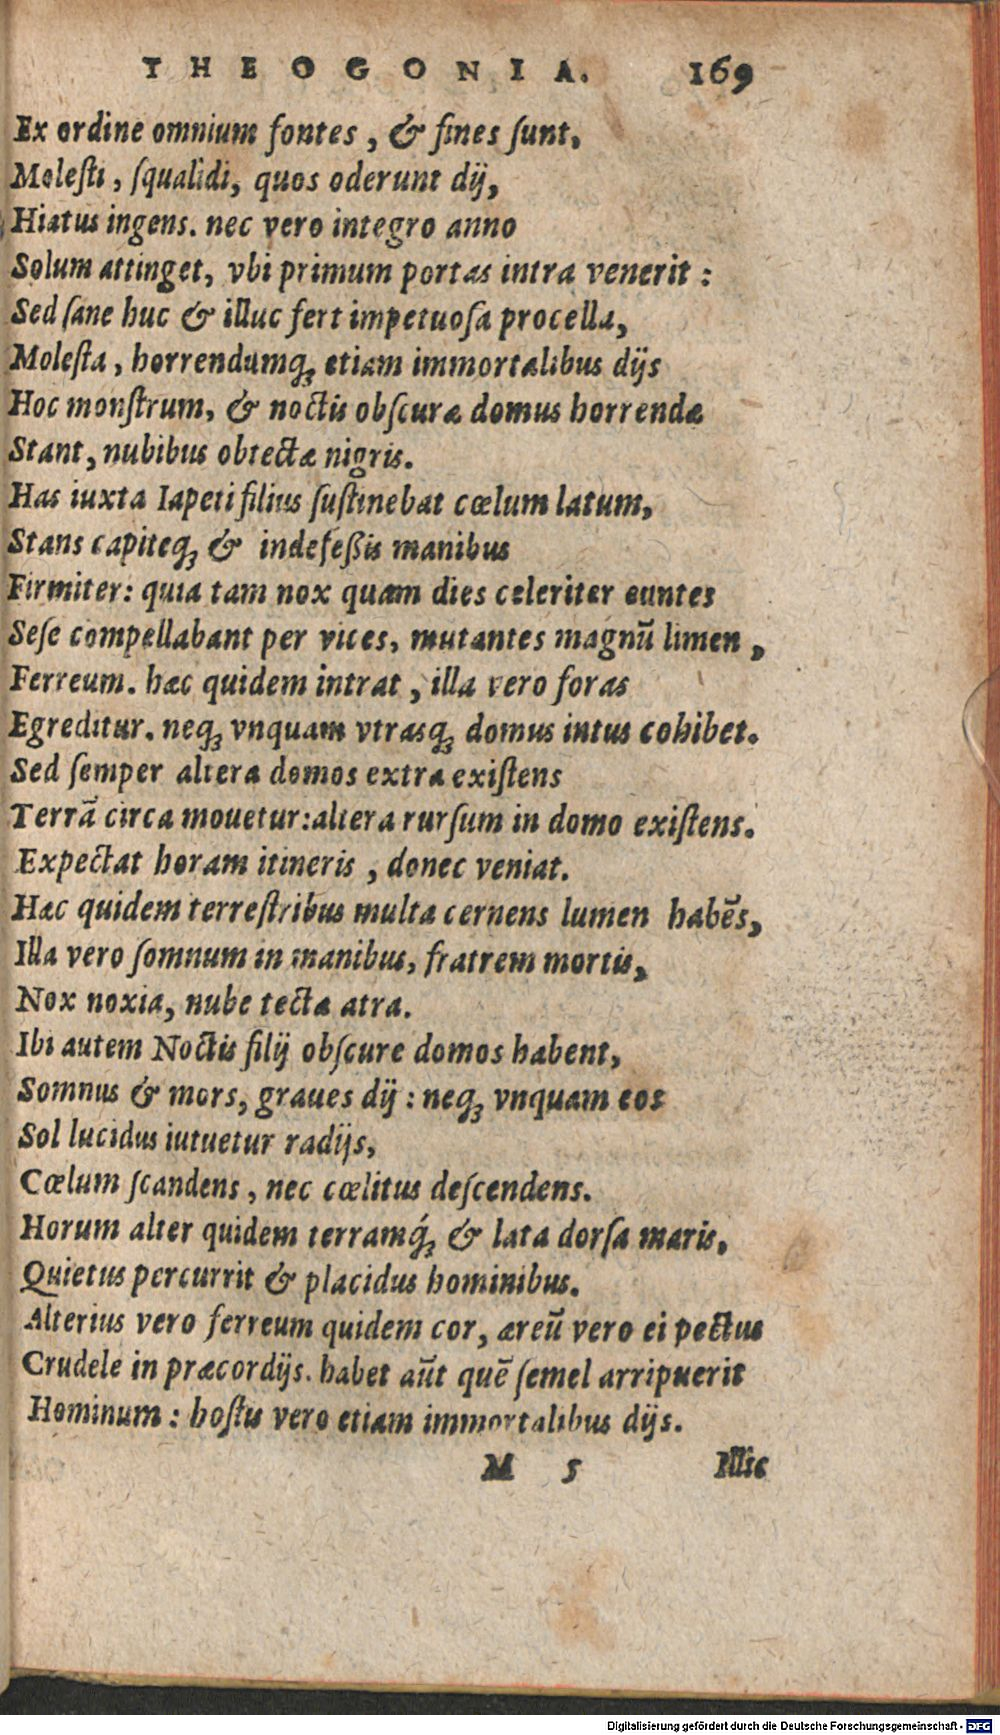 THEOGONIA. 169
Ex ordine omnium fontes, & fines ſunt,
Moleſti, ſqualidi, quos oderunt dij,
Hiatus ingens. nec vero integro anno
Solum attinget, vbi primum portas intra venerit:
Sed ſane huc & illuc fert impetuoſa procella,
Moleſta, horrendumq́; etiam immortalibus dijs
Hoc monſtrum, & noctis obſcuræ domus horrendæ
Stant, nubibus obtectæ nigris.
Has iuxta Iapeti filius ſuſtinebat cœlum latum,
Stans capiteq; & indefeßis manibus
Firmiter: quia tam nox quam dies celeriter euntes
Seſe compellabant per vices, mutantes magnū limen,
Ferreum. hæc quidem intrat, illa vero foras
Egreditur. neq; vnquam vtrasq; domus intus cohibet.
Sed ſemper altera domos extra exiſtens
Terrā circa mouetur: altera rurſum in domo exiſtens.
Expectat horam itineris, donec veniat.
Hæc quidem terreſtribus multa cernens lumen habēs,
Illa vero ſomnum in manibus, fratrem mortis,
Nox noxia, nube tecta atra.
Ibi autem Noctis filij obſcure domos habent,
Somnus & mors, graues dij: neq; vnquam eos
Sol lucidus iutuetur radijs,
Cœlum ſcandens, nec cœlitus deſcendens.
Horum alter quidem terramq́; & lata dorſa maris,
Quietus percurrit & placidus hominibus.
Alterius vero ferreum quidem cor, æreū vero ei pectus
Crudele in præcordijs. habet aūt quē ſemel arripuerit
Hominum: hoſtis vero etiam immortalibus dijs.
M 5 Illic
Digitalisierung gefördert durch die Deutsche Forschungsgemeinschaft - DFG